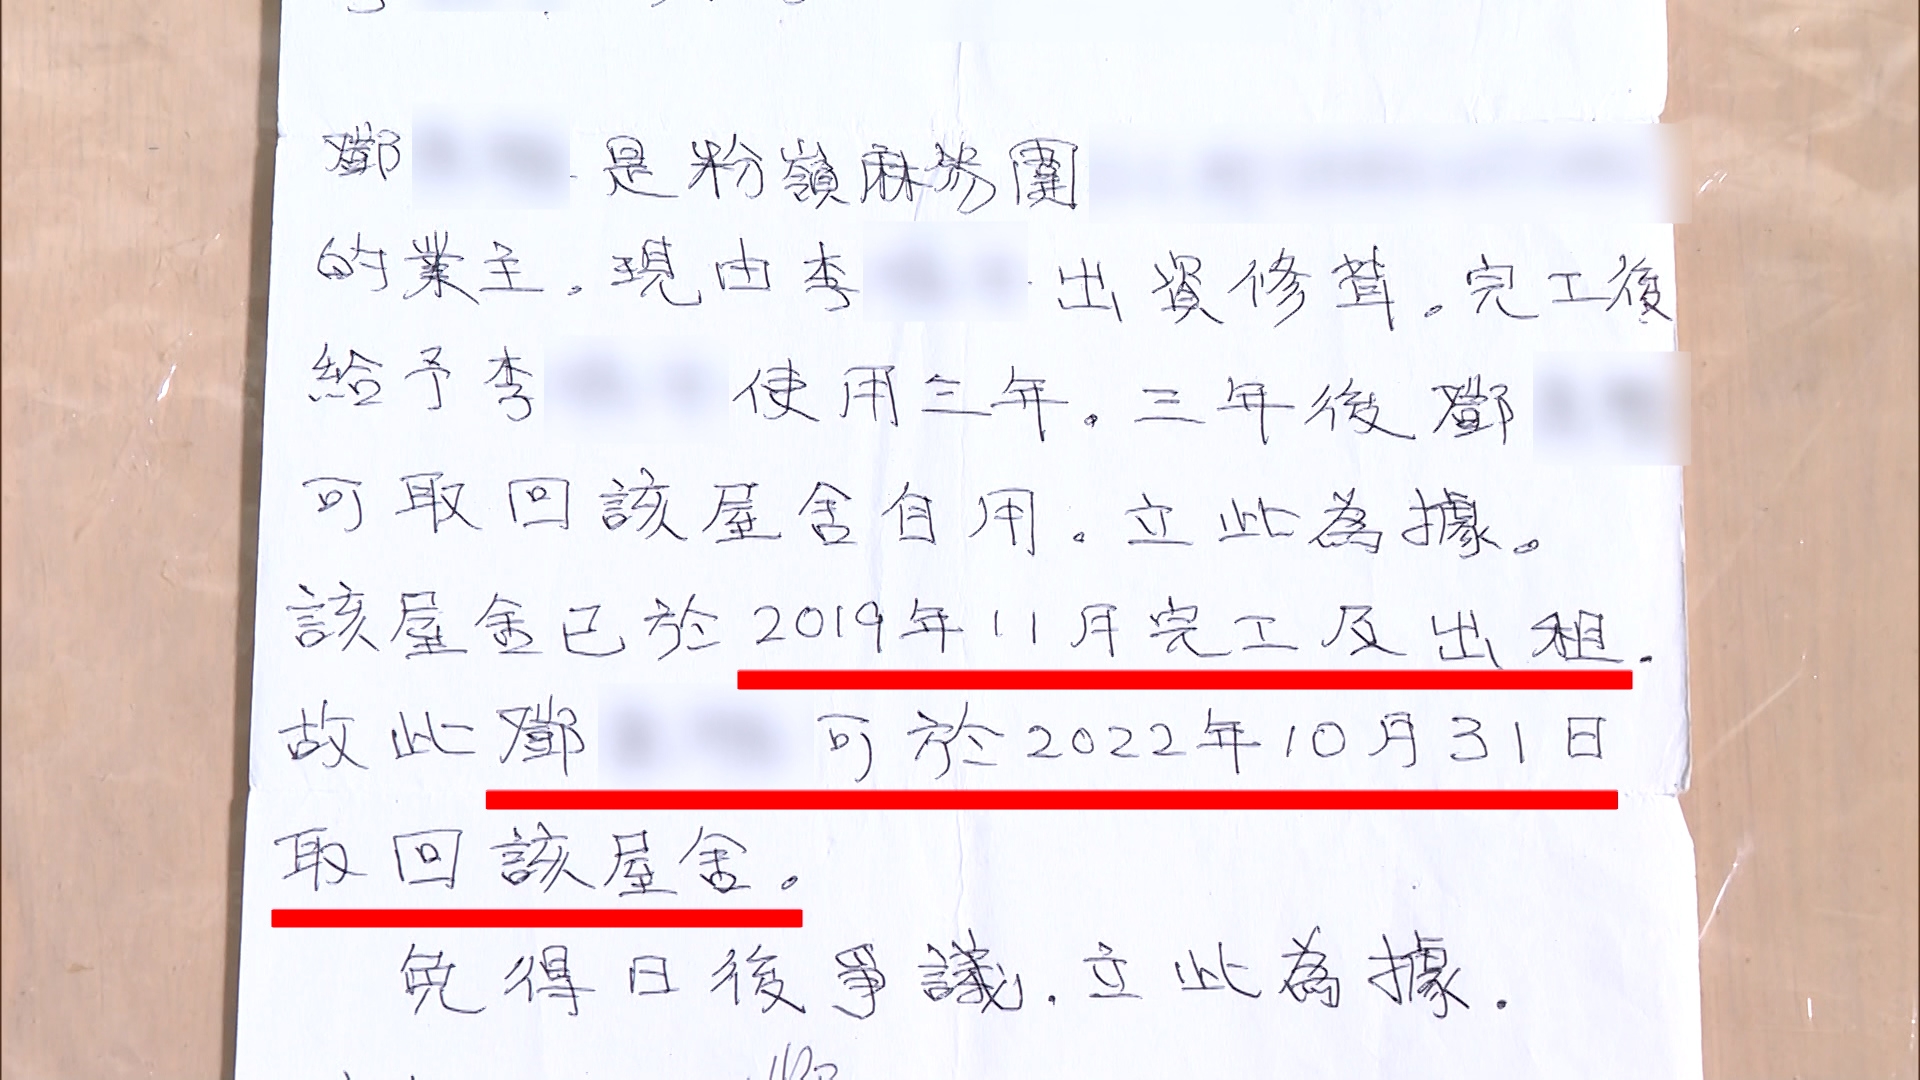 鄧 是粉嶺麻笏圍
的業主。現由李 出資修葺。完工後
給予李 使用三年。三年後鄧
可取回該屋舍自用。立此為據。
該屋舍已於2019年11月完工及出租.
故此鄧 可於2022年10月31日
取回該屋舍。
免得日後爭議.立此為據.